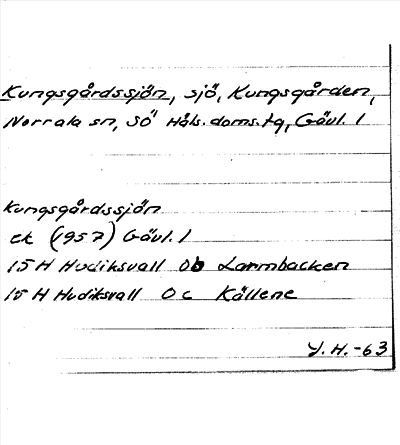 Kungsgårdssjön, sjö, Kungsgården,
Norrala sn, Sö Häls. doms. tg, Gävl. l
Kungsgårdssjön
ek (1957) Gävl. l
15 H Hudiksvall 0b Larmbacken
15 H Hudiksvall 0c Källene
Y. H. -63